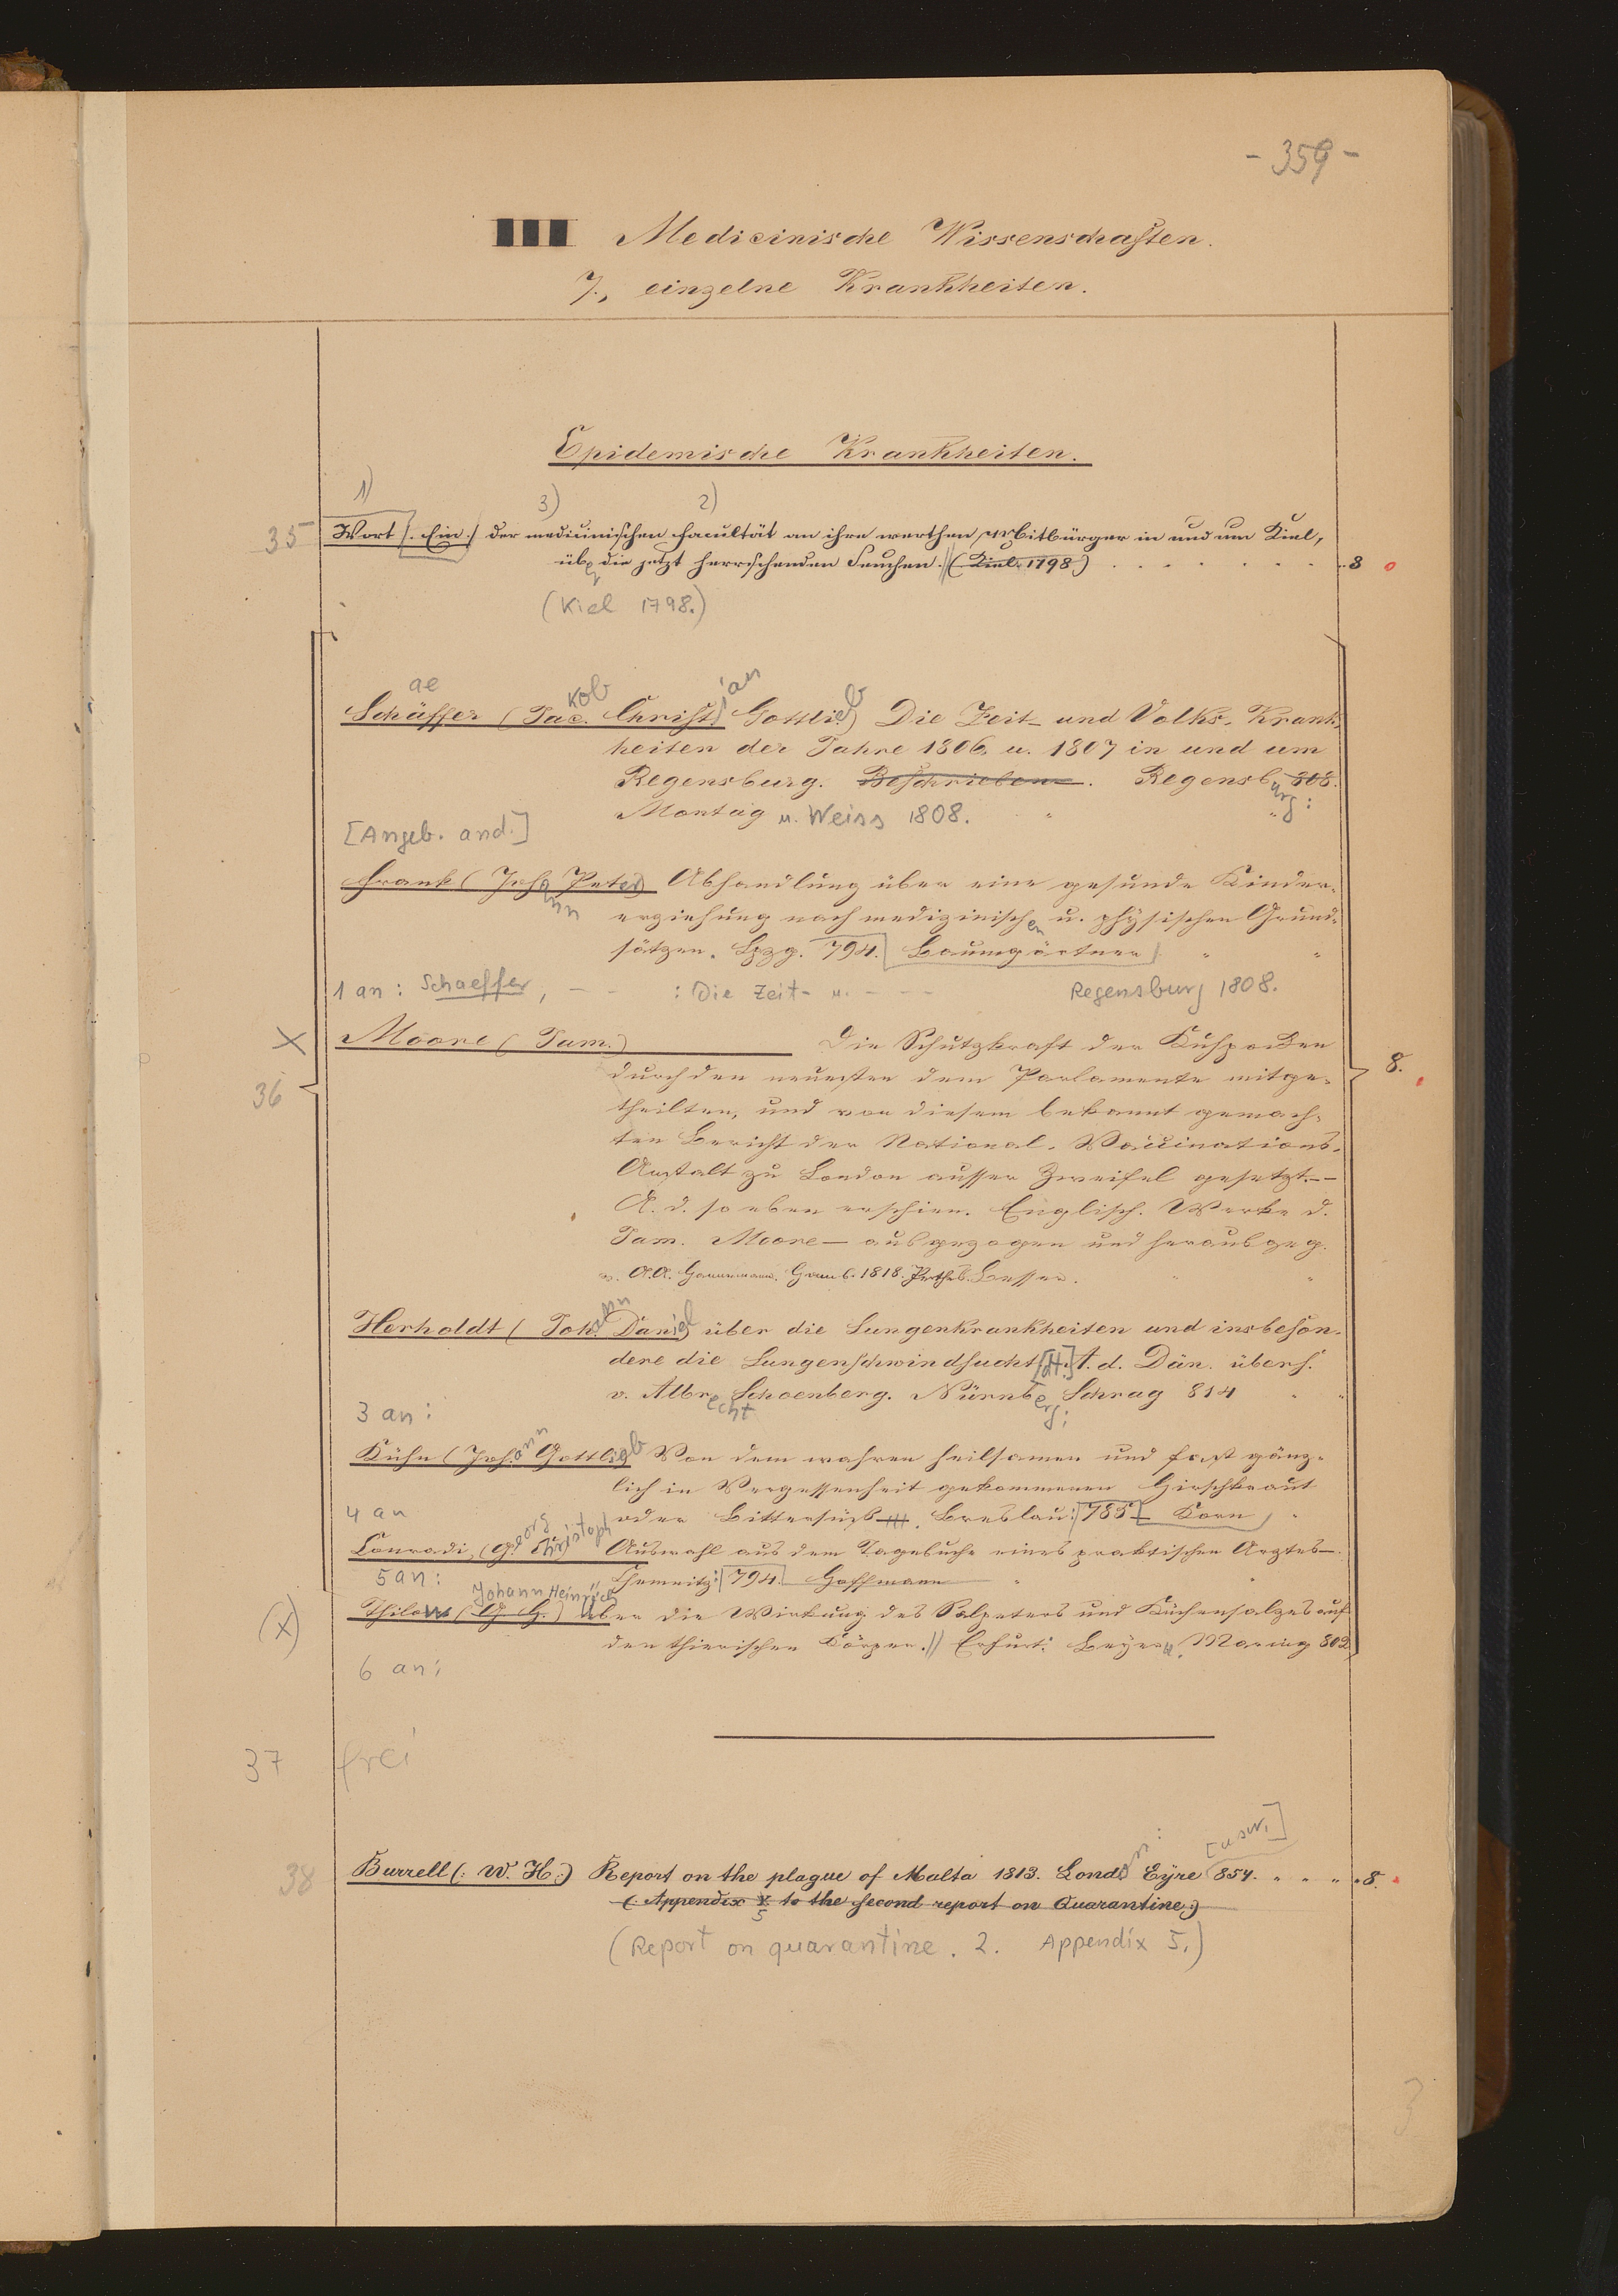 - 359 -
III Medicinische Wissenschaften.
7., einzelne Krankheiten.
Epidemische Krankheiten.
1) 3) 2)
35 Wort (: Ein :) der medicinischen Facultät an ihre werthen Mitbürger in und um Kiel,
über die jetzt herrschenden Seuchen. // (Kiel. 1798.) 8
(Kiel 1798.)
Schäffer (Jac. Christ. Gottlieb) Die Zeit- und Volks-Krank-
ae kob ian
heiten der Jahre 1806. u. 1807 in und um
Regensburg. Beschrieben. Regensburg: 808.
Montag u. Weiss 1808.
[Angeb. and.]
Frank (Johann Peter) Abhandlung über eine gesunde Kinder-
erziehung nach medizinischen u. physischen Grund-
sätzen. Lpzg. 794. [Baumgärtner]
1 an: Schaeffer, - - : Die Zeit- u. - - - Regensburg 1808.
X Moore (Jam.) Die Schutzkraft der Kuhpocken
36 durch den neuesten dem Parlamente mitge- 8.
theilten, und von diesem bekannt gemach-
ten Bericht der National-Vaccinations-
Anstalt zu London ausser Zweifel gesetzt. --
A. d. so eben erschien. Englisch. Werke d.
Jam. Moore - ausgezogen und herausgeg.
v. A.A. Hamb. 1818. Perth. Besser.
Herholdt (Johann Daniel) über die Lungenkrankheiten und insbeson-
dere die Lungenschwindsucht [dt.] A. d. Dän. übers.
v. Albrecht Schoenberg. Nürnberg: Schrag 814
3 an:
Kühn (Johann Gottlieb) Von dem wahren heilsamen und fast gänz-
lich in Vergessenheit gekommenen Hirschkraut
4 an oder Bittersüß. Breslau: 785 [Korn]
Conradi, (Georg Christoph) Auswahl aus dem Tagebuche eines praktischen Arztes -
5 an: Chemnitz: 794. Hoffmann
Johann Heinrich
(x) Thilow (G. H.) über die Wirkung des Salpeters und Küchensalzes auf
den thierischen Körper. // Erfurt: Beyer u. Maring 802
6 an:
37 frei
[usw.]
38 Burrell (: W. H :) Report on the plague of Malta 1813. London: Eyre 854. 8.
(: Appendix V. to the second report on Quarantine :)
5
(Report on quarantine. 2. Appendix 5.)
3